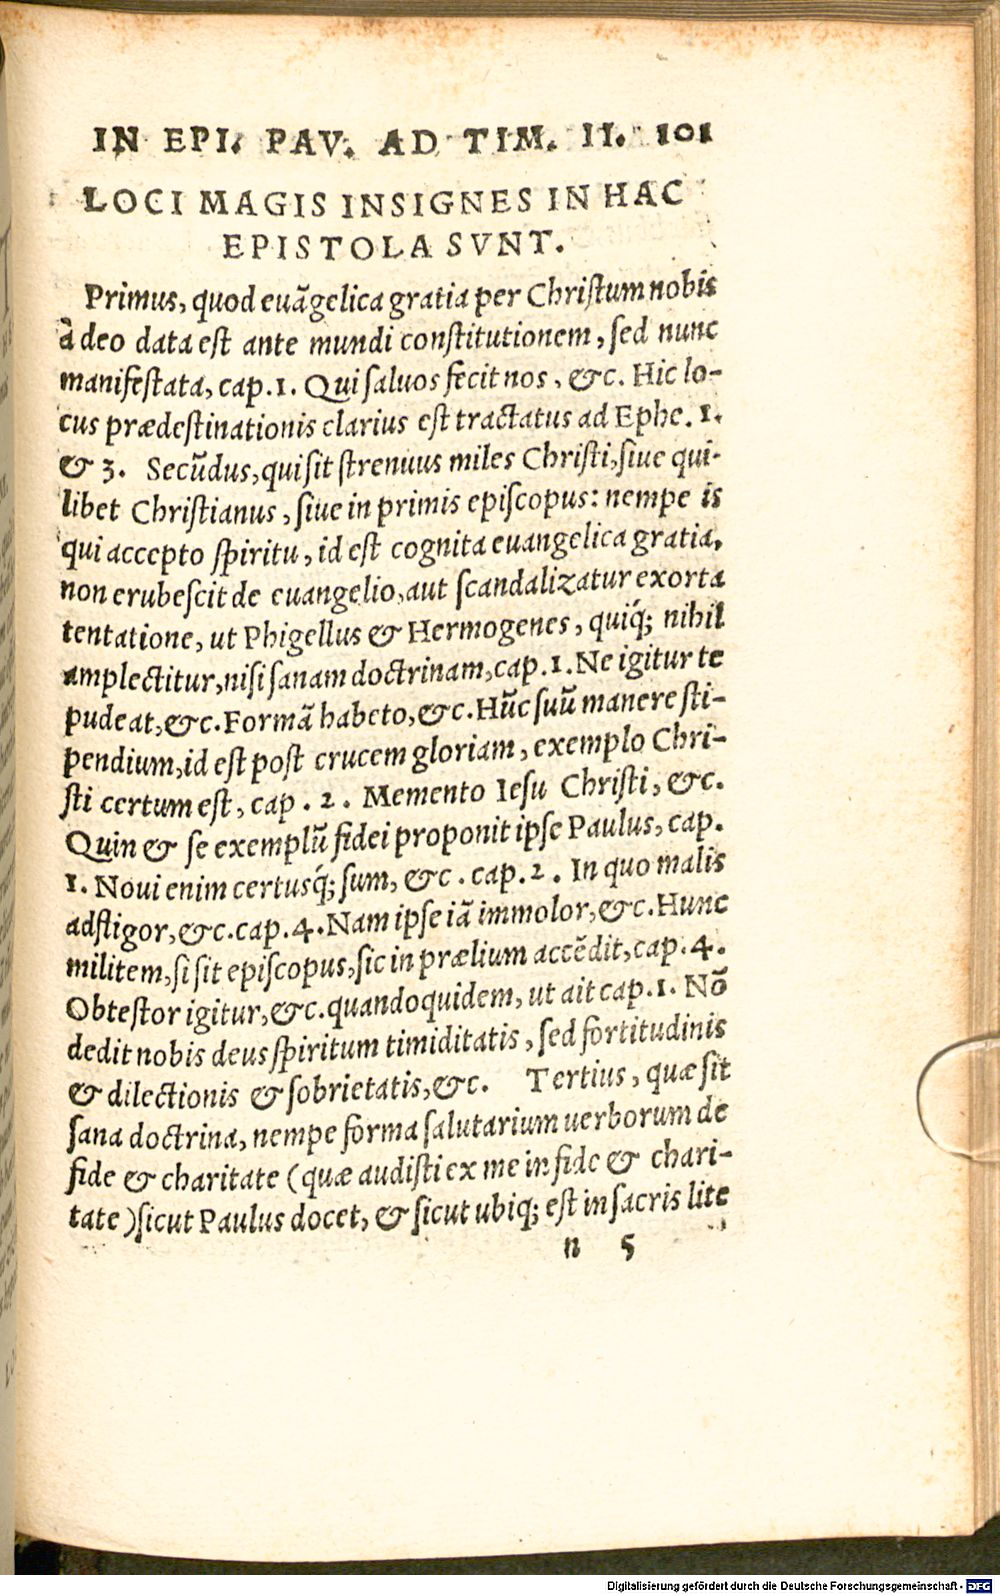 IN EPI. PAV. AD TIM. II. 101
LOCI MAGIS INSIGNES IN HAC
EPISTOLA SVNT.
Primus, quod euãgelica gratia per Chriſtum nobis
à deo data eſt ante mundi conſtitutionem, ſed nunc
manifeſtata, cap. 1. Qui ſaluos fecit nos, &c. Hic lo-
cus prædeſtinationis clarius eſt tractatus ad Ephe. 1.
& 3. Secũdus, qui ſit ſtrenuus miles Chriſti, ſiue qui-
libet Chriſtianus, ſiue in primis epiſcopus: nempe is
qui accepto ſpiritu, id eſt cognita euangelica gratia,
non erubeſcit de euangelio, aut ſcandalizatur exorta
tentatione, ut Phigellus & Hermogenes, quiq́; nihil
amplectitur, niſi ſanam doctrinam, cap. 1. Ne igitur te
pudeat, &c. Formã habeto, &c. Hũc ſuũ manere ſti-
pendium, id eſt poſt crucem gloriam, exemplo Chri-
ſti certum eſt, cap. 2. Memento Ieſu Chriſti, &c.
Quin & ſe exemplũ fidei proponit ipſe Paulus, cap.
1. Noui enim certusq́; ſum, &c. cap. 2. In quo malis
adfligor, &c. cap. 4. Nam ipſe iã immolor, &c. Hunc
militem, ſi ſit epiſcopus, ſic in prælium accẽdit, cap. 4.
Obteſtor igitur, &c. quandoquidem, ut ait cap. 1. Nõ
dedit nobis deus ſpiritum timiditatis, ſed fortitudinis
& dilectionis & ſobrietatis, &c. Tertius, quæ ſit
ſana doctrina, nempe forma ſalutarium uerborum de
fide & charitate (quæ audiſti ex me in fide & chari-
tate) ſicut Paulus docet, & ſicut ubiq; eſt in ſacris lite
n 5
Digitalisierung gefördert durch die Deutsche Forschungsgemeinschaft - DFG